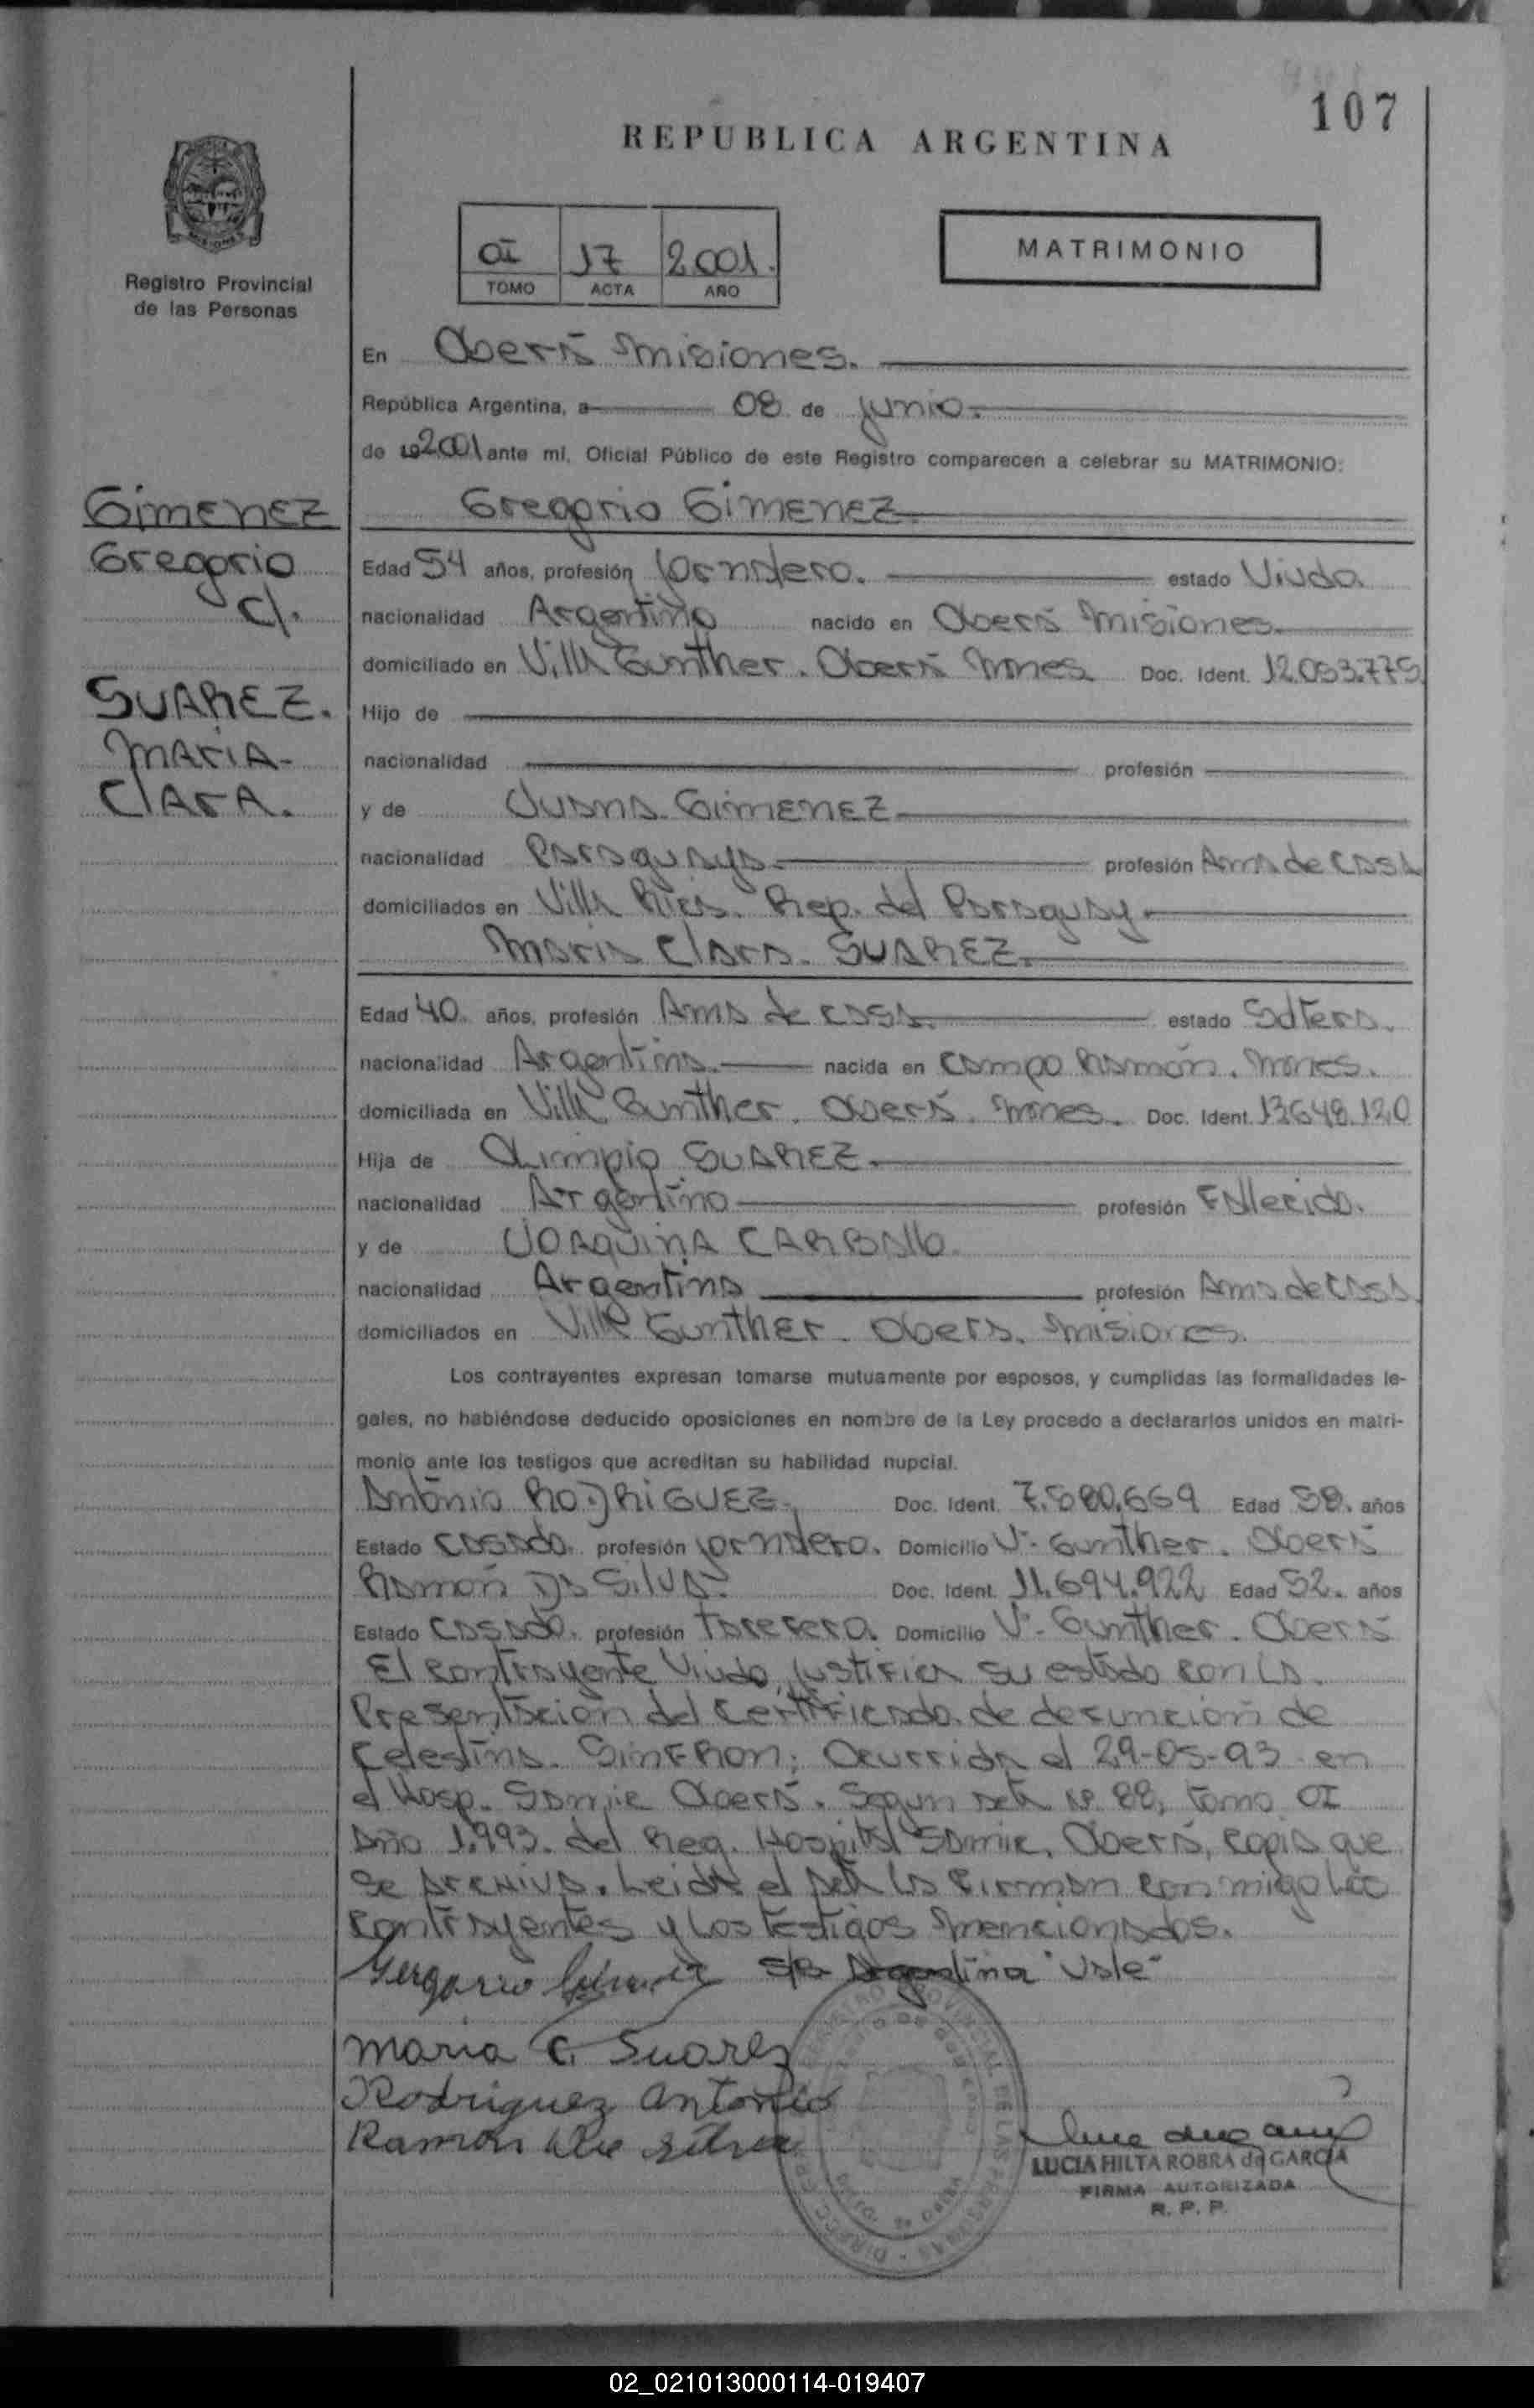 107
REPUBLICA ARGENTINA
Registro Provincial
de las Personas
OI 17 2001.
TOMO ACTA AÑO
MATRIMONIO
En Oberá Misiones.
República Argentina, a 08 de junio.
de 192001 ante mí, Oficial Público de este Registro comparecen a celebrar su MATRIMONIO:
Gimenez
Gregorio
c/.
SUAREZ.
MARIA-
CLARA.
Gregorio GimENEZ
Edad 54 años, profesión jornalero. estado Viudo.
nacionalidad Argentino nacido en Oberá Misiones
domiciliado en Villa Gunther. Oberá Mnes Doc. Ident. 12.053.775
Hijo de
nacionalidad profesión
y de Juana GimENEZ
nacionalidad Paraguaya profesión Ama de casa
domiciliados en Villa Rica. Rep. del Paraguay
Maria Clara. SUAREZ.
Edad 40. años, profesión Ama de casa. estado Soltera.
nacionalidad Argentina. nacida en Campo Ramón. Mnes.
domiciliada en Villa Gunther. Oberá. Mnes. Doc. Ident. 13.648.120
Hija de Olimpio SUAREZ.
nacionalidad Argentino profesión Fallecido.
y de JOAQUINA CARBAllo.
nacionalidad Argentina profesión Ama de casa
domiciliados en Villa Gunther. Obera. Misiones.
Los contrayentes expresan tomarse mutuamente por esposos, y cumplidas las formalidades le-
gales, no habiéndose deducido oposiciones en nombre de la Ley procedo a declararlos unidos en matri-
monio ante los testigos que acreditan su habilidad nupcial.
Antonio RODRIGUEZ. Doc. Ident. 7.580.669 Edad 58. años
Estado casado. profesión jornalero. Domicilio V. Gunther. Oberá
Ramón Da Silva. Doc. Ident. 11.694.922 Edad 52. años
Estado casado. profesión tarefero. Domicilio V. Gunther. Oberá
El contrayente Viudo, justifica su estado con la
Presentación del Certificado de defunción de
Celestina. ; Ocurrida el 29-05-93 en
el Hosp. Samic Oberá. Segun acta Nº 88, tomo OI
Año 1.993. del Reg. Hospital Samic. Oberá, copia que
se archiva. Leida el acta la firman conmigo los
contrayentes y los testigos mencionados.
S/B Argentina "Vale"
Maria C. Suarez
Rodriguez Antonio
Ramón Da Silva
LUCIA HILTA ROBRA de GARCIA
FIRMA AUTORIZADA
R. P. P.
02_021013000114-019407